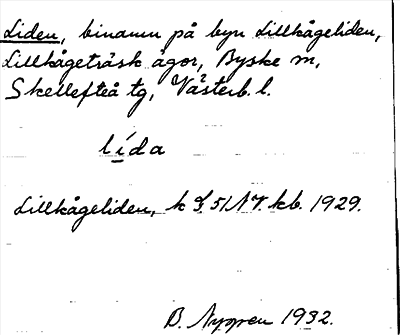 Liden, binamn på byn Lillkågeliden,
Lillkågeträsk ägor, Byske sn,
Skellefteå tg, Västerb. l.
lida
Lillkågeliden, k 51 NV. kb. 1929.
B. Nygren 1932.